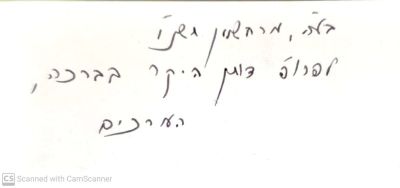 בס"ד, מרחשוון תשע"ו
לפרופ' דותן היקר בברכה,
העורכים
CS Scanned with CamScanner